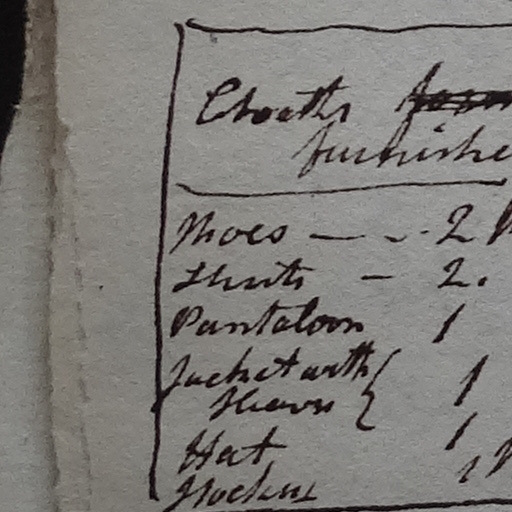 Cloaths
furnishe
Shoes — - - 2 P
Shirts — 2.
Pantaloon 1
Jacket with { 1
Sleaves
Hat 1
Stockens 1 P